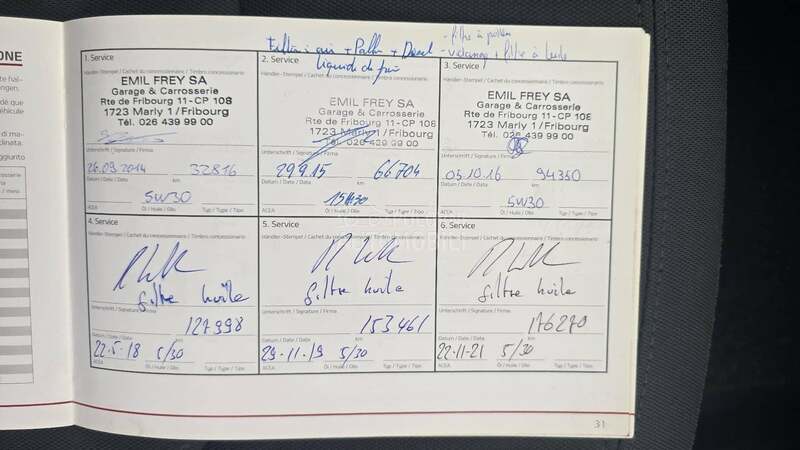 ONE
filtre à pollen
Filtre: air + Pollen + Diesel
- vidange + filtre à huile
liquide de frein
1. Service
Händler-Stempel / Cachet du concessionnaire / Timbro concessionario
EMIL FREY SA
Garage & Carrosserie
Rte de Fribourg 11-CP 108
1723 Marly 1/Fribourg
Tél. 026 439 99 00
Unterschrift / Signature / Firma
26.09.2014 32816
Datum / Date / Data km
5W30
ACEA Öl / Huile / Olio Typ / Type / Tipo
2. Service
Händler-Stempel / Cachet du concessionnaire / Timbro concessionario
EMIL FREY SA
Garage & Carrosserie
Rte de Fribourg 11-CP 108
1723 Marly 1/Fribourg
Tél. 026 439 99 00
Unterschrift / Signature / Firma
29.9.15 66704
Datum / Date / Data km
15W30
ACEA Öl / Huile / Olio Typ / Type / Tipo
3. Service
Händler-Stempel / Cachet du concessionnaire / Timbro concessionario
EMIL FREY SA
Garage & Carrosserie
Rte de Fribourg 11-CP 108
1723 Marly 1/Fribourg
Tél. 026 439 99 00
Unterschrift / Signature / Firma
05.10.16 94350
Datum / Date / Data km
5W30
ACEA Öl / Huile / Olio Typ / Type / Tipo
4. Service
Händler-Stempel / Cachet du concessionnaire / Timbro concessionario
filtre huile
Unterschrift / Signature / Firma
127998
Datum / Date / Data km
22.5.18 5/30
ACEA Öl / Huile / Olio Typ / Type / Tipo
5. Service
Händler-Stempel / Cachet du concessionnaire / Timbro concessionario
filtre huile
Unterschrift / Signature / Firma
153461
Datum / Date / Data km
29-11-19 5/30
ACEA Öl / Huile / Olio Typ / Type / Tipo
6. Service
Händler-Stempel / Cachet du concessionnaire / Timbro concessionario
filtre huile
Unterschrift / Signature / Firma
176270
Datum / Date / Data km
22-11-21 5/30
ACEA Öl / Huile / Olio Typ / Type / Tipo
31